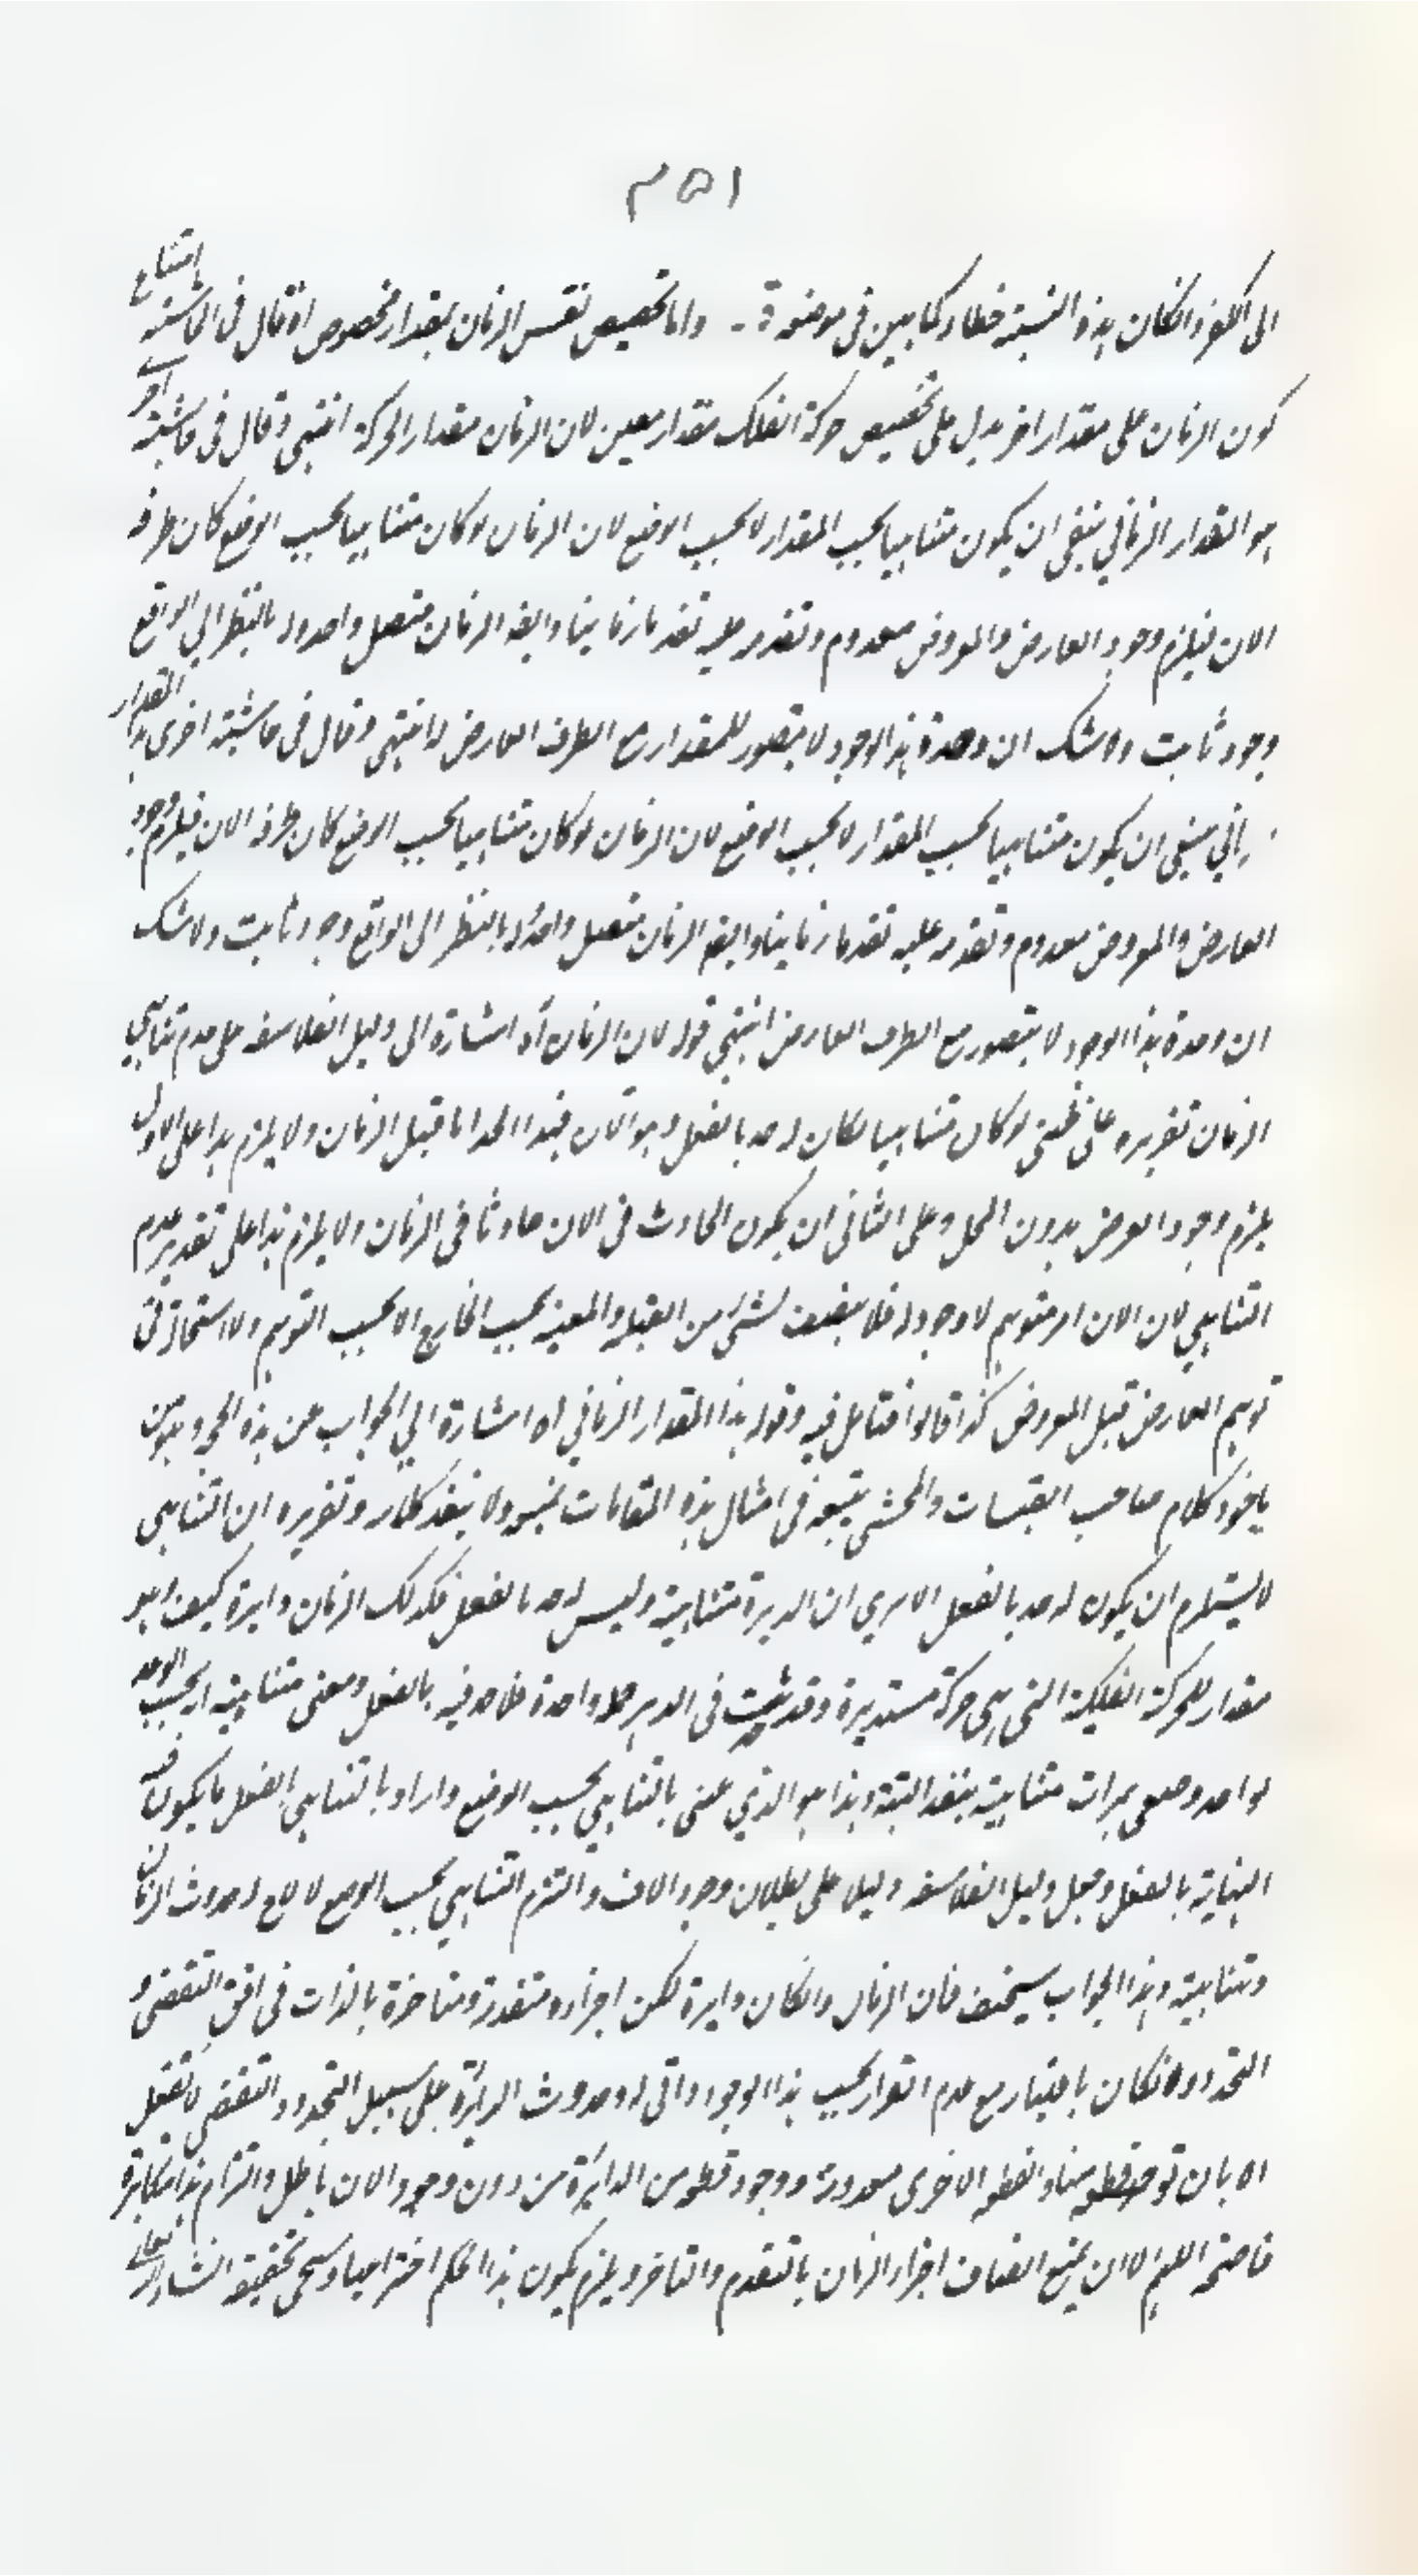 ٣٥١
الى الكفر وانكان هذه النسبة خطاء وكما بين فى موضعه قـ واما تخصيص نفس الزمان بقدار مخصوص اه قال فى الحاشية امتناع
كون الزمان على مقدار اخر يدل على تخصيص حركة الفلك مقدار معين لان الزمان مقدار الحركة انتهى وقال فى حاشية اخرى
هو المقدار الزماني ينبغى ان يكون متناهيا بحسب المقدار لا بحسب الوضع لان الزمان لو كان متناهيا بحسب الوضع كان طرفه
الان فيلزم وجود العارض والمعروض معدوم وتقدمه عليه تقدما زمانيا وايضا الزمان متصل واحد وله بالنظر الي الواقع
وجود ثابت ولا شك ان وحدة هذا الوجود لا يتصور للمقدار مع الطرف العارض له انتهى وقال فى حاشية اخرى هذا المقدار
الزماني ينبغى ان يكون متناهيا بحسب المقدار لا بحسب الوضع لان الزمان لو كان متناهيا بحسب الوضع كان طرفه الان فيلزم وجود
العارض والمعروض معدوم وتقدمه عليه تقدما زمانيا وايضا الزمان متصل واحد وله بالنظر الى الواقع وجود ثابت ولا شك
ان وحدة هذا الوجود لا يتصور مع الطرف العارض انتهى قوله لان الزمان اه اشارة الى دليل الفلاسفه على عدم تناهي
الزمان تقريره على ظني لو كان متناهيا لكان له حد بالفعل وهو الان فهذا الحد اما قبل الزمان ولا يلزم هذا على الاول
يلزم وجود العرض بدون المحل وعلى الثانى ان يكون الحادث فى الان حادثا فى الزمان ولا يلزم هذا على تقدير عدم
التناهي لان الان امر متوهم لا وجود له فلا يتصف بشئ من القبلية والمعية بحسب الخارج الا بحسب التوهم ولا استحالة فى
توهم العارض قبل المعروض كذا قالوا فتامل فيه وقوله هذا المقدار الزماني اه اشارة الي الجواب عن هذه الحجة وهو من
ماخوذ كلام صاحب القبسات والمحشى يتبعه فى امثال هذه المقامات بنسبه ولا ينقد كلامه وتقريره ان التناهى
لا يستلزم ان يكون له حد بالفعل الا يري ان الدايرة متناهية وليس له حد بالفعل فكذلك الزمان دايرة كيف وهو
مقدار للحركة الفلكية التى هى حركة مستديرة وقد ثبت فى الدهر جملة واحدة فلا حد فيه بالفعل ومعنى متناهية انه بحسب الوحد
لواحد وصعى مرات متناهية ينفد البتة وهذا هو الذي عنى بالتناهي بحسب الوضع واراد بالتناهي بالفعل ما يكون فيه
النهاية بالفعل وجعل دليل الفلاسفه دليلا على بطلان وجود الان والتزم التناهي بحسب الوضع لا مع لحدوث الزمان
وتناهيه وهذا الجواب سخيف فان الزمان وانكان دايرة لكن اجزاءه متقدمة ومتاخرة بالذات فى افق التقضى و
التجدد وانكان باعتبار مع عدم القرار بحسب هذا الوجود الذاتى له وحدوث الدايرة على سبيل التجدد والتقضى لا يعقل
الا بان توجد قطعة منها والقطعة الاخرى معدومة ووجود قطعة من الدايرة من دون وجود الان باطل والتزام هذا مكابرة
فاضحة اللهم الا ان يمنع اتصاف اجزاء الزمان بالتقدم والتاخر ويلزم كون هذا الحكم اختراعيا وسيجى تحقيقه انشاء الله تعالى